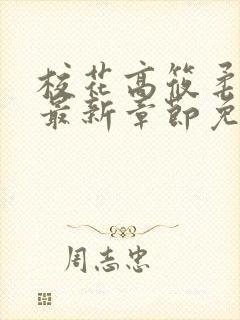 校花高筱柔
最新章節免
周志忠